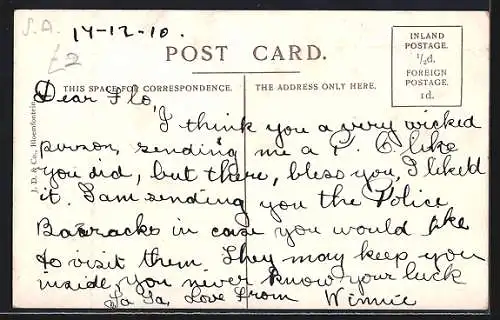 S.A.
14-12-10.
£2
POST CARD.
INLAND
POSTAGE.
½d.
FOREIGN
POSTAGE.
1d.
THIS SPACE FOR CORRESPONDENCE.
THE ADDRESS ONLY HERE.
J. D. & Co., Bloemfontein.
Dear Flo,
I think you a very wicked
person, sending me a P. C. like
you did, but there, bless you, I liked
it. I am sending you the Police
Barracks in case you would like
to visit them They may keep you
inside, you never know your luck
Ta Ta, Love from Winnie